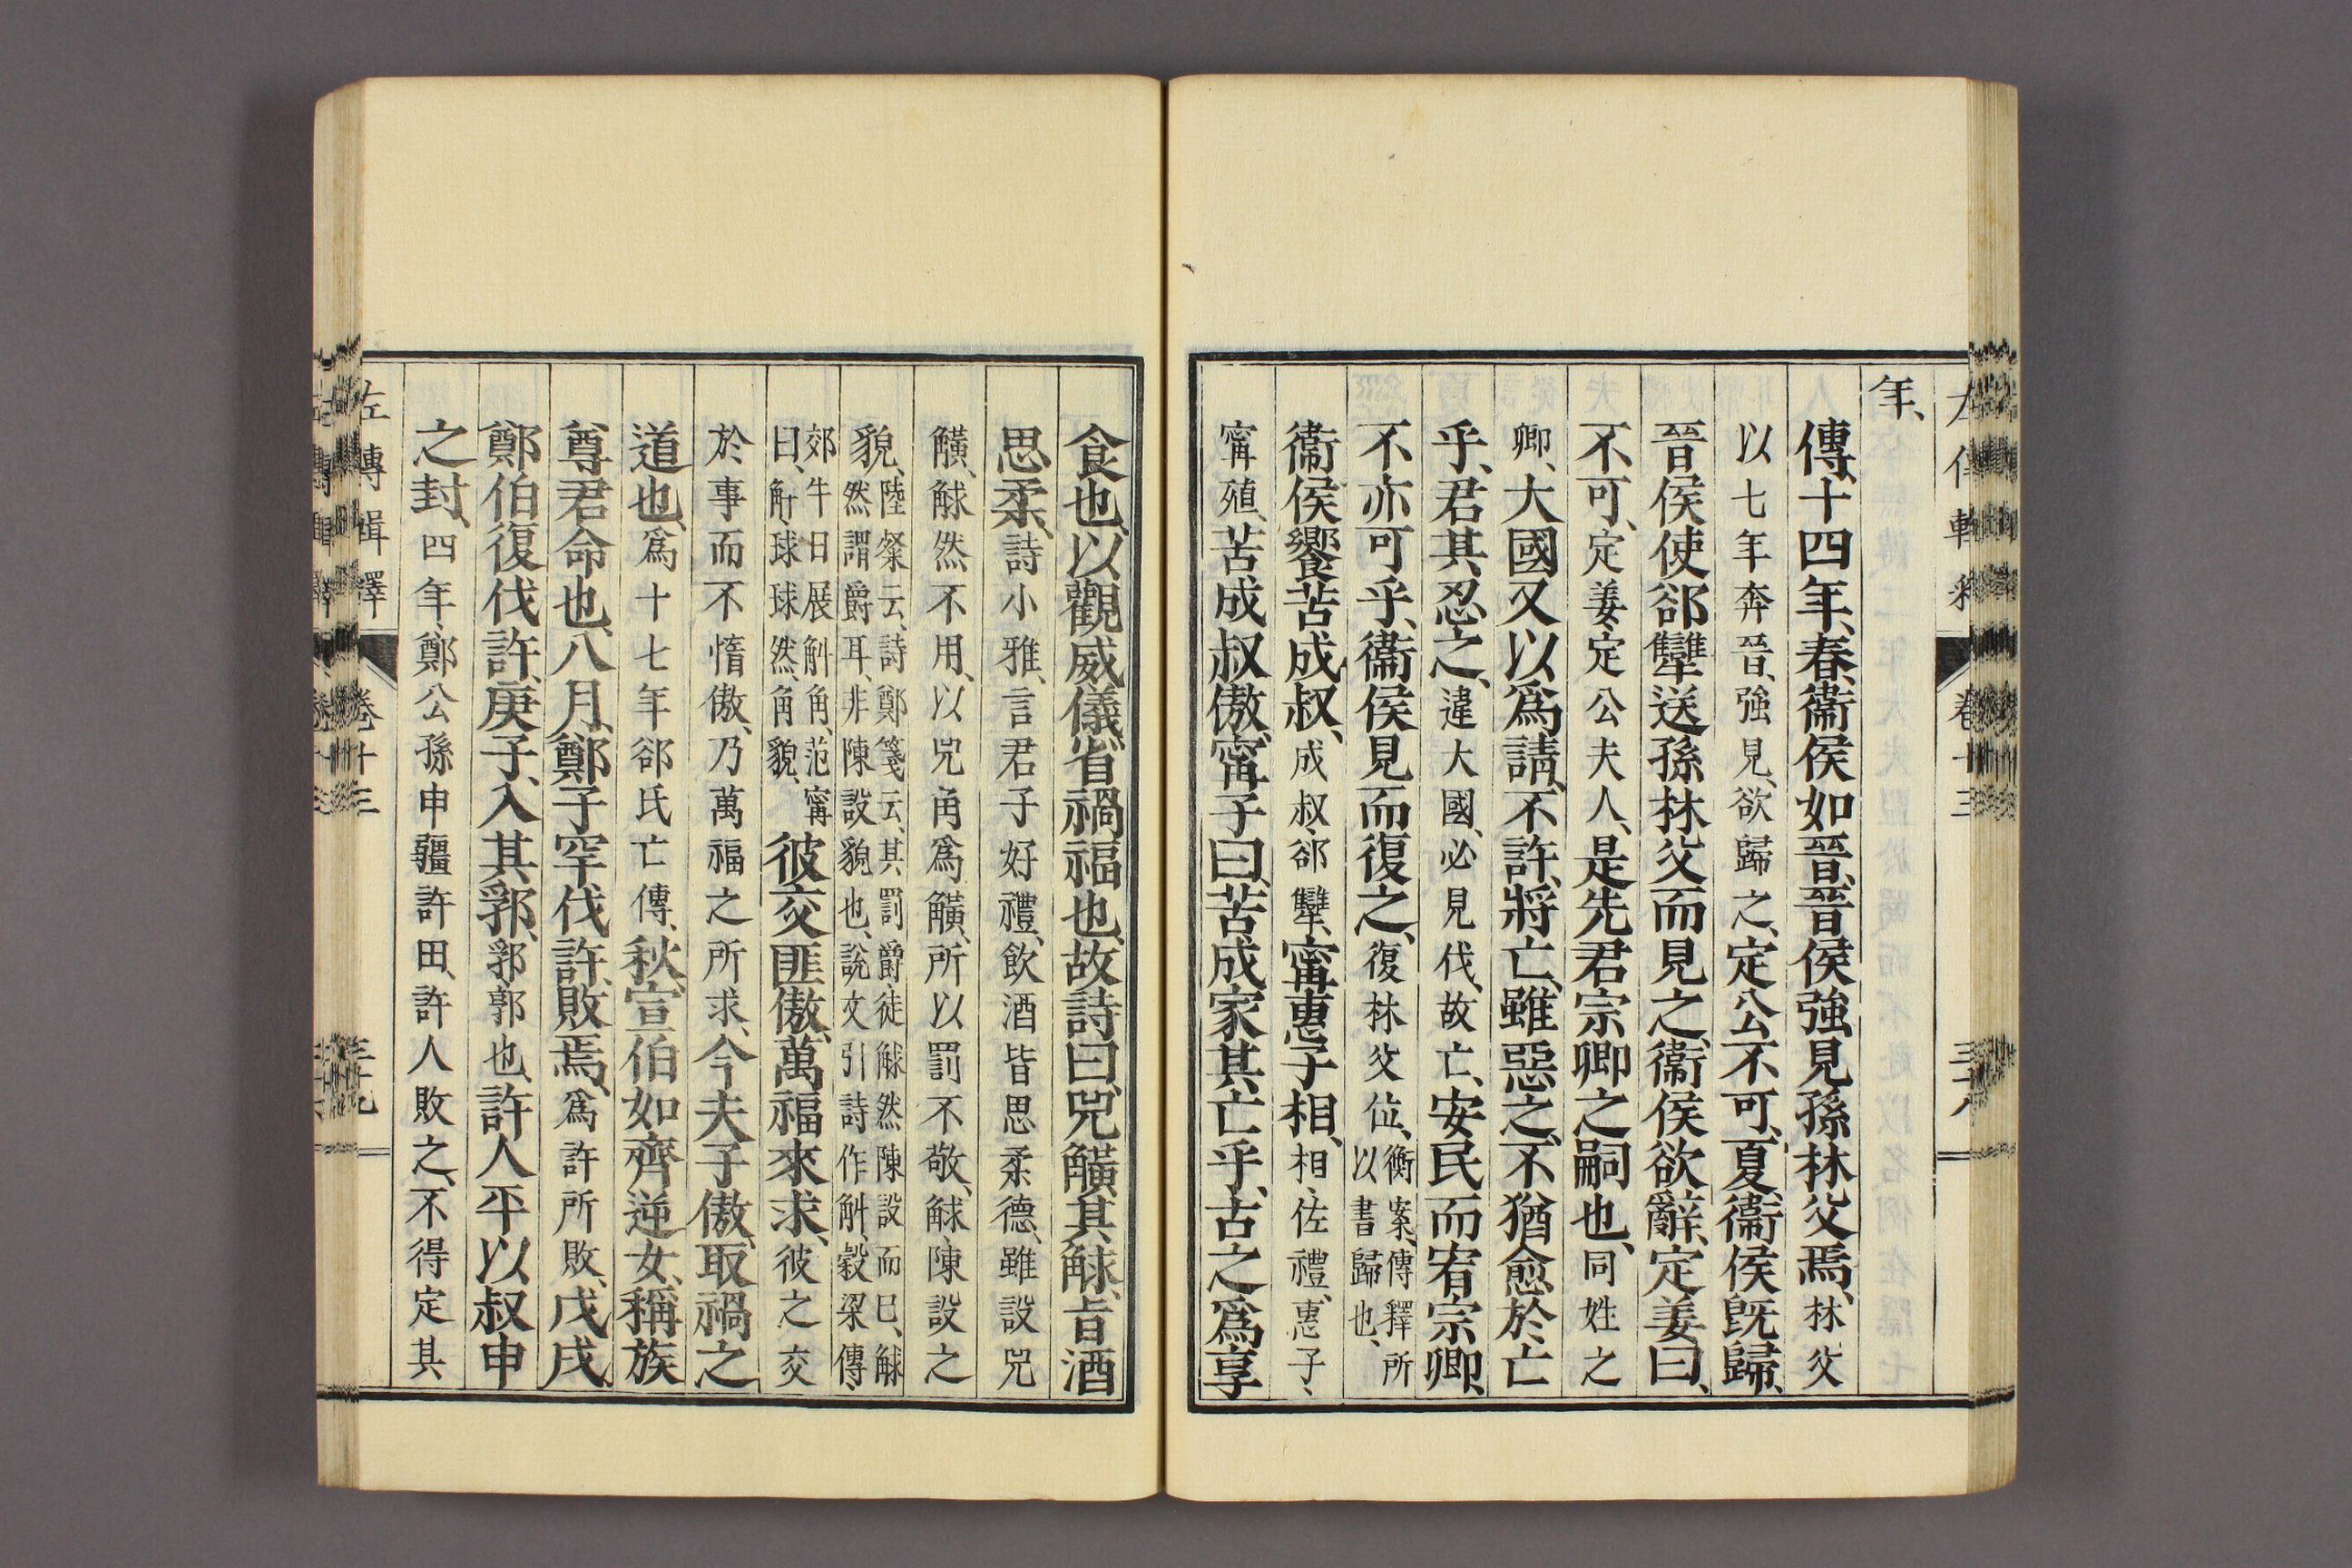 年、
傳、十四年、春、衞侯如晉、晉侯強見孫林父焉、林父
以七年奔晉、強見、欲歸之、定公不可、夏、衞侯既歸、
晉侯使郤犨送孫林父而見之、衞侯欲辭、定姜曰、
不可、定姜、定公夫人、是先君宗卿之嗣也、同姓之
卿、大國又以爲請、不許、將亡、雖惡之、不猶愈於亡
乎、君其忍之、違大國、必見伐、故亡、安民而宥宗卿、
不亦可乎、衞侯見而復之、復林父位、衡案、傳釋所以書歸也、
衞侯饗苦成叔、成叔、郤犨、甯惠子相、相、佐禮、惠子、
甯殖、苦成叔傲、甯子曰、苦成家其亡乎、古之爲享
食也、以觀威儀、省禍福也、故詩曰、兕觵其觩、旨酒
思柔、詩小雅、言君子好禮、飲酒皆思柔德、雖設兕
觵、觩然不用、以兕角爲觵、所以罰不敬、觩、陳設之
貌、陸粲云、詩鄭箋云、其罰爵徒觩然陳設而已、觩然謂爵耳、非陳設貌也、說文引詩作斛、穀梁傳、
郊牛日展斛角、范甯曰、斛、球球然、角貌、彼交匪傲、萬福來求、彼之交
於事而不惰傲、乃萬福之所求、今夫子傲、取禍之
道也、爲十七年郤氏亡傳、秋、宣伯如齊逆女、稱族
尊君命也、八月、鄭子罕伐許、敗焉、爲許所敗、戊戌、
鄭伯復伐許、庚子、入其郛、郛、郭也、許人平以叔申
之封、四年、鄭公孫申疆許田、許人敗之、不得定其
左傳輯釋 卷十三 三十九